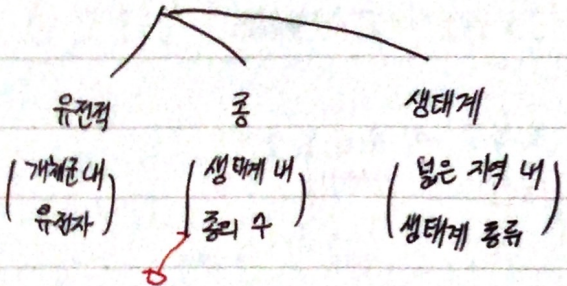 유전적 종 생태계
(개체군 내 유전자)
(생태계 내 종의 수)
(넓은 지역 내 생태계 종류)